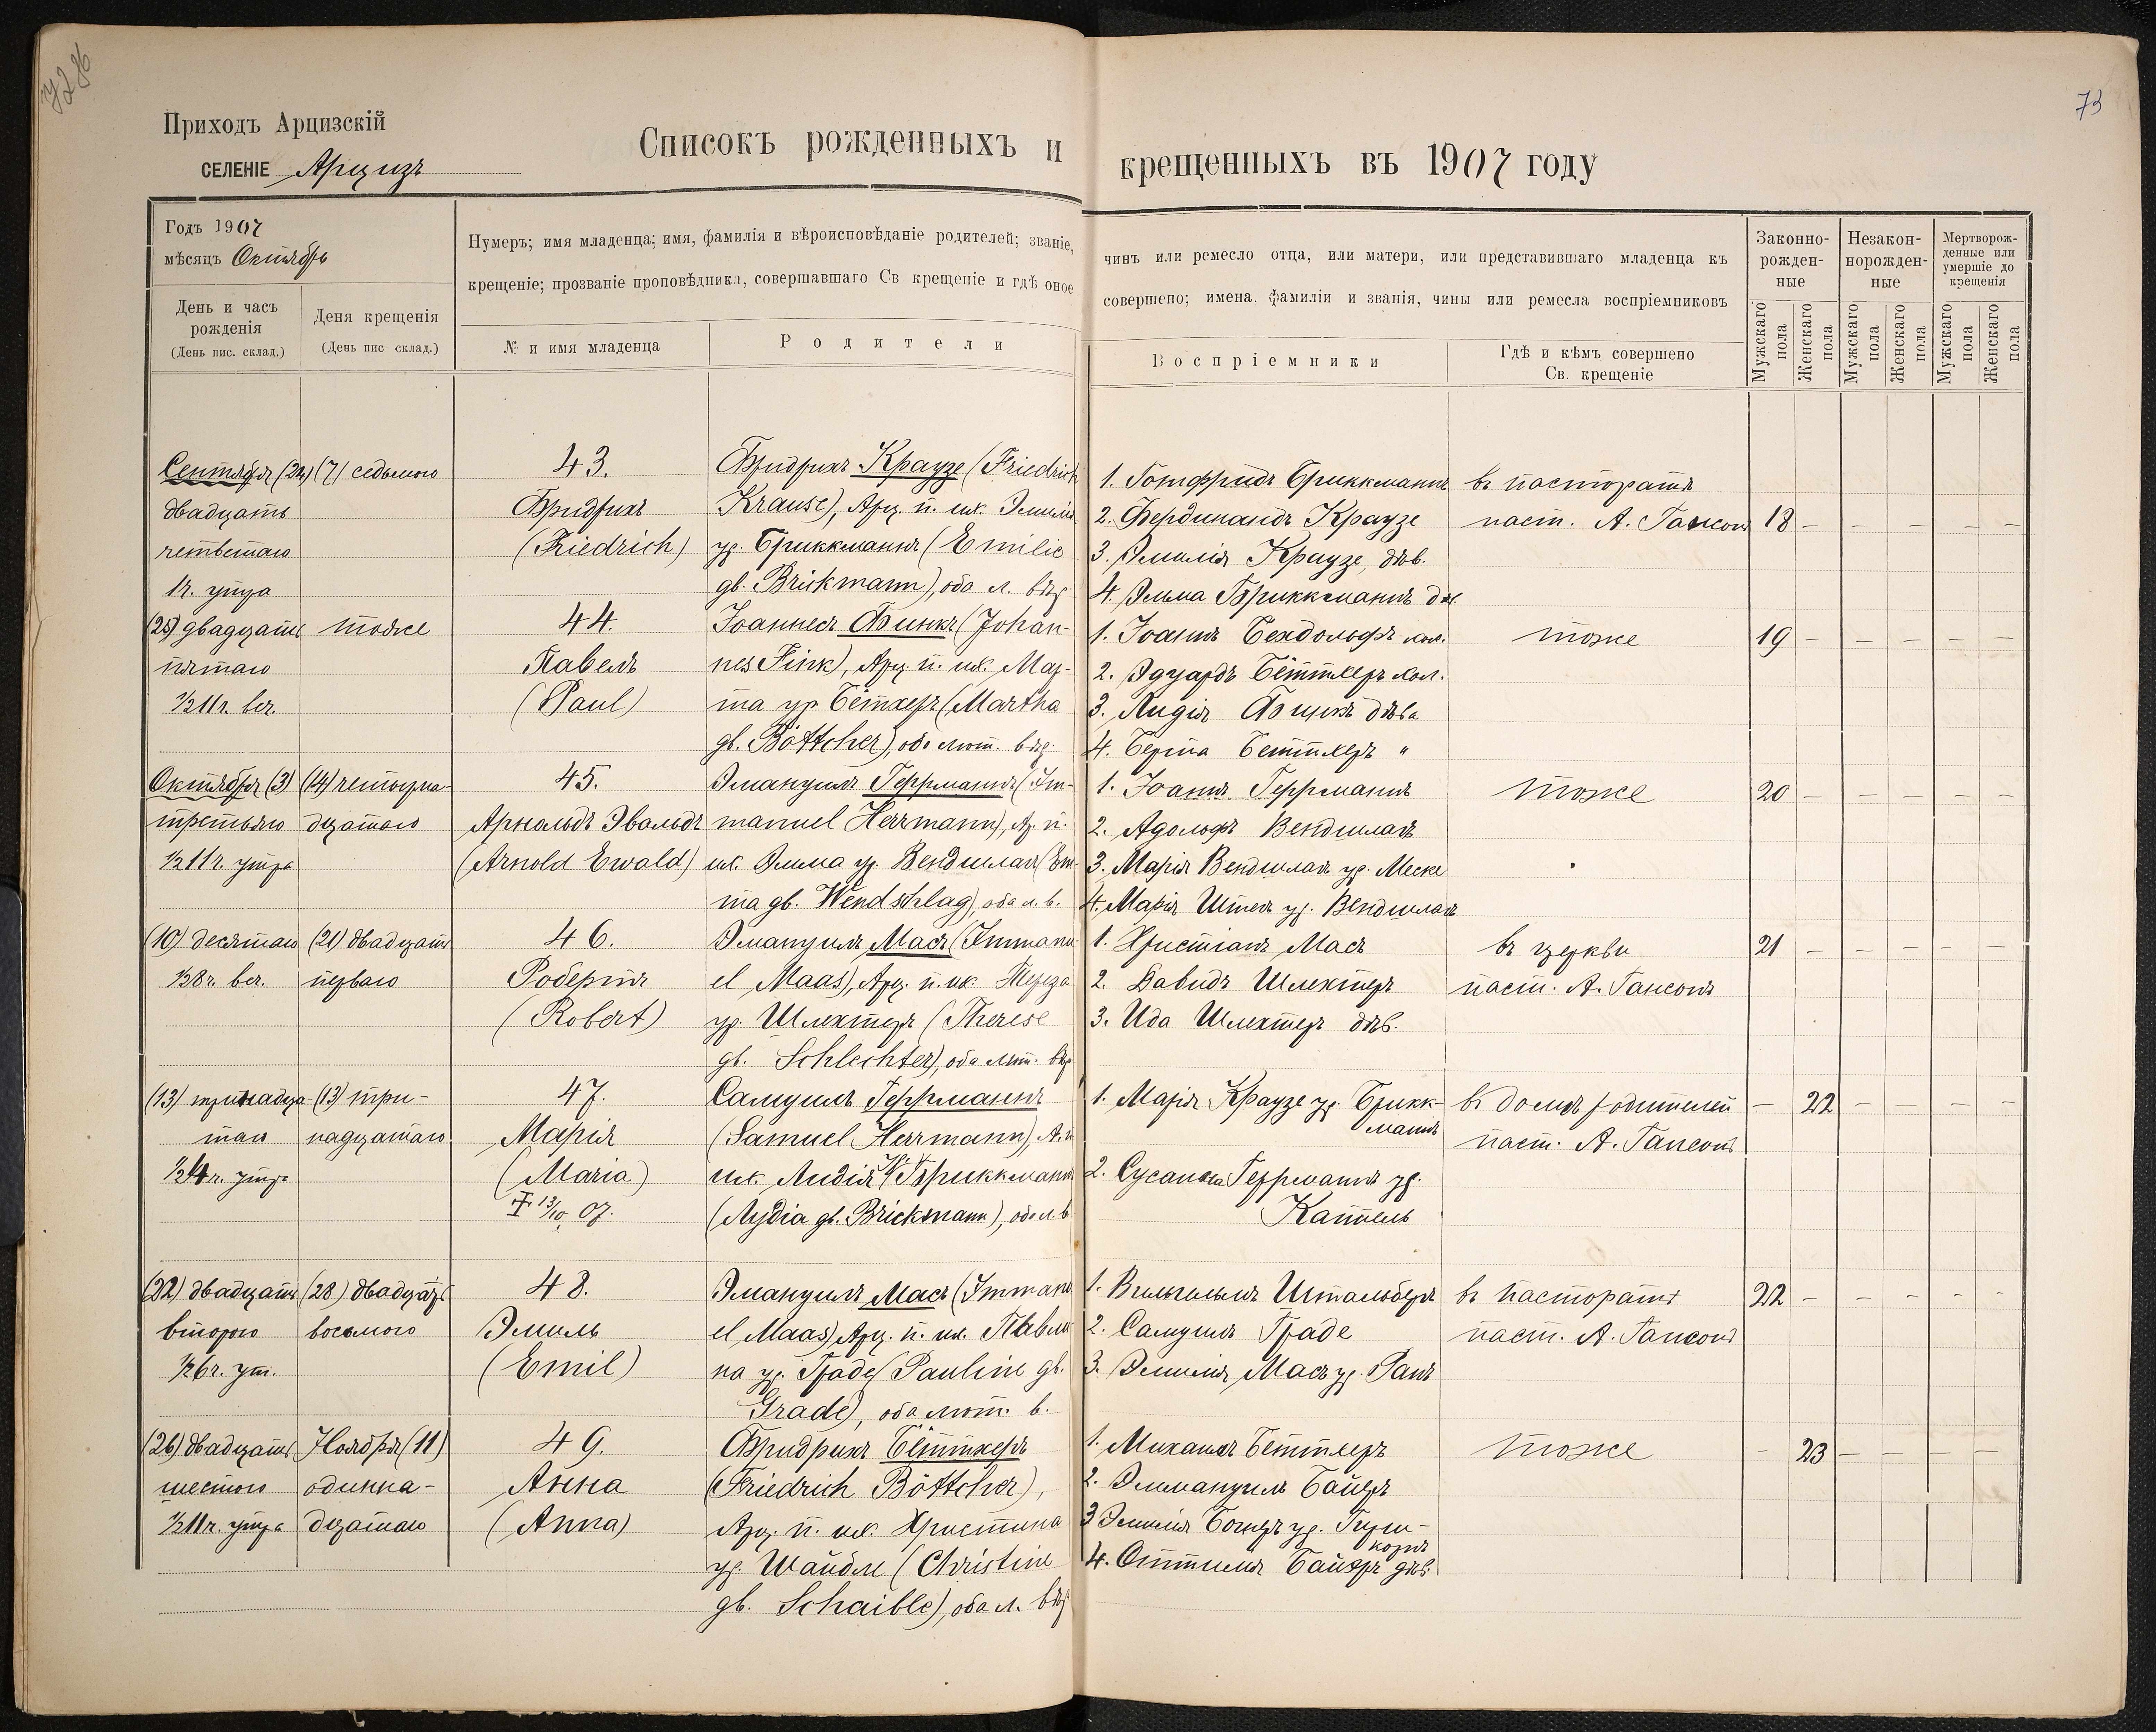 73
Приходъ Арцизскій
СЕЛЕНІЕ Арцизъ
Списокъ рожденныхъ и крещенныхъ въ 1907 году
Годъ 1907
мѣсяцъ Октябрь
День и часъ рожденія
(День пис. склад.)
Деня крещенія
(День пис склад.)
Нумеръ; имя младенца; имя, фамилія и вѣроисповѣданіе родителей; званіе, чинъ или ремесло отца, или матери, или представившаго младенца къ
крещеніе; прозваніе проповѣдника, совершавшаго Св крещеніе и гдѣ оное совершено; имена. фамиліи и званія, чины или ремесла воспріемниковъ
№ и имя младенца
Родители
Воспріемники
Гдѣ и кѣмъ совершено
Св. крещеніе
Законно-
рожден-
ные
Незакон-
норожден-
ные
Мертворож-
денные или
умершіе до
крещенія
Мужскаго пола
Женскаго пола
Мужскаго пола
Женскаго пола
Мужскаго пола
Женскаго пола
Сентября (24)
двадцать
четвертаго
1 ч. утра
(7) седьмого
43.
Фридрихъ
(Friedrich)
Фридрихъ Краузе (Friedrich
Krause), Арц. п. ик. Эмилія
ур. Бриккманнъ (Emilie
gb. Brickmann), оба л. вѣр
1. Готфридъ Бриккманнъ
2. Фердинандъ Краузе
3. Эмилія Краузе, дѣв.
4. Эльма Бриккманнъ дѣв.
въ пасторатѣ
паст. А. Гансонъ
18 – – – – –
(25) двадцать
пятаго
½11 ч. веч.
тоже
44.
Павелъ
(Paul)
Іоаннесъ Финкъ (Johan-
nes Fink), Арц. п. ик. Мар-
та ур. Бётхеръ (Martha
gb. Böttcher), оба лют. вѣр.
1. Іоаннъ Бехдольфъ кол.
2. Эдуардъ Бёттхеръ кол.
3. Лидія Финкъ дѣва
4. Берта Беттхеръ "
тоже
19 – – – – –
Октября (3)
третьяго
½11 ч. утра
(14) четырна-
дцатаго
45.
Арнольдъ Эвальдъ
(Arnold Ewald)
Эмануилъ Геррманнъ (Im-
manuel Herrmann), Ар. п.
ик. Эмма ур. Вендшлагъ (Em-
ma gb. Wendschlag), оба л. в.
1. Іоаннъ Геррманнъ
2. Адольфъ Вендшлагъ
3. Марія Вендшлагъ ур. Меске
4. Марія Штехъ ур. Вендшлагъ
тоже
20 – – – – –
(10) десятаго
½8 ч. веч.
(21) двадцать
перваго
46.
Робертъ
(Robert)
Эмануилъ Масъ (Immanu-
el Maas), Арц. п. ик. Тереза
ур. Шлехтеръ (Therese
gb. Schlechter), оба лют. вѣр
1. Христіанъ Масъ
2. Давидъ Шлехтеръ
3. Ида Шлехтеръ дѣв.
въ церкви
паст. А. Гансонъ
21 – – – – –
(13) тринадца-
таго
½4 ч. утра
(13) три-
надцатаго
47.
Марія
(Maria)
13/10. 07.
Самуилъ Геррманнъ
(Samuel Herrmann), А. п.
ик. Лидія ур. Бриккманнъ
(Lydia gb. Brickmann), оба л. в
1. Марія Краузе ур. Брикк-
манъ
2. Сусанна Геррманъ ур.
Каттель
въ домѣ родителей
паст. А. Гансонъ
– 22 – – – –
(22) двадцать
второго
½6 ч. ут.
(28) двадцать
восьмого
48.
Эмиль
(Emil)
Эмануилъ Масъ (Immanu
el Maas) Арц. п. ик. Павли
на ур. Граде (Pauline gb.
Grade), оба лют. в.
1. Вильгельмъ Штальберъ
2. Самуилъ Граде
3. Эмилія Масъ ур. Ранъ
въ пасторатѣ
паст. А. Гансонъ
22 – – – – –
(26) двадцать
шестого
½11 ч. утра
Ноября (11)
одинна-
дцатаго
49.
Анна
(Anna)
Фридрихъ Бёттхеръ
(Friedrich Böttcher),
Арц. п. ик. Христина
ур. Шайбле (Christine
gb. Schaible), оба л. вѣр
1. Михаилъ Беттхеръ
2. Эммануилъ Байеръ
4. Оттилія Байеръ дѣв.
тоже
– 23 – – – –